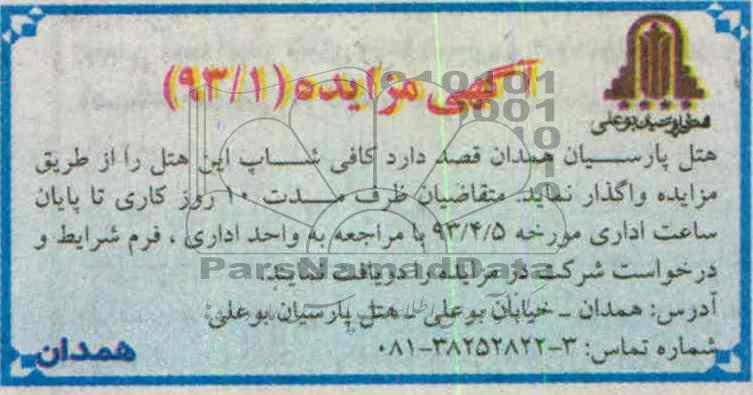 آگهی مزایده (۹۳/۱)
هتل پارسیان بوعلی
هتل پارسیان همدان قصد دارد کافی شاپ این هتل را از طریق
مزایده واگذار نماید. متقاضیان ظرف مدت ۱۰ روز کاری تا پایان
ساعت اداری مورخه ۹۳/۴/۵ با مراجعه به واحد اداری ، فرم شرایط و
درخواست شرکت در مزایده را دریافت نمایند.
ParsNamadData
آدرس: همدان ـ خیابان بوعلی ـ هتل پارسیان بوعلی
شماره تماس: ۳-۳۸۲۵۲۸۲۲-۰۸۱
همدان